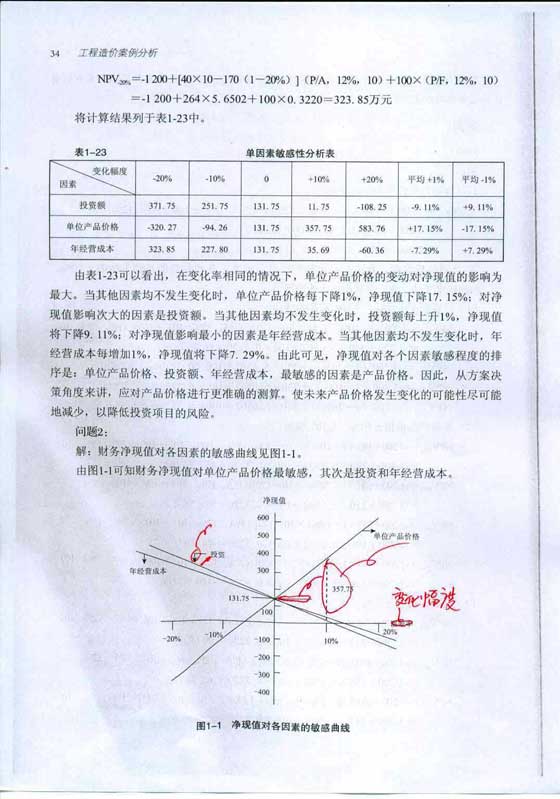 34 工程造价案例分析
NPV-20%=-1 200+[40×10-170(1-20%)](P/A,12%,10)+100×(P/F,12%,10)
=-1 200+264×5.6502+100×0.3220=323.85万元
将计算结果列于表1-23中。
表1-23 单因素敏感性分析表
变化幅度 因素 -20% -10% 0 +10% +20% 平均+1% 平均-1%
投资额 371.75 251.75 131.75 11.75 -108.25 -9.11% +9.11%
单位产品价格 -320.27 -94.26 131.75 357.75 583.76 +17.15% -17.15%
年经营成本 323.85 227.80 131.75 35.69 -60.36 -7.29% +7.29%
由表1-23可以看出，在变化率相同的情况下，单位产品价格的变动对净现值的影响为
最大。当其他因素均不发生变化时，单位产品价格每下降1%，净现值下降17.15%；对净
现值影响次大的因素是投资额。当其他因素均不发生变化时，投资额每上升1%，净现值
将下降9.11%；对净现值影响最小的因素是年经营成本。当其他因素均不发生变化时，年
经营成本每增加1%，净现值将下降7.29%。由此可见，净现值对各个因素敏感程度的排
序是：单位产品价格、投资额、年经营成本，最敏感的因素是产品价格。因此，从方案决
策角度来讲，应对产品价格进行更准确的测算。使未来产品价格发生变化的可能性尽可能
地减少，以降低投资项目的风险。
问题2：
解：财务净现值对各因素的敏感曲线见图1-1。
由图1-1可知财务净现值对单位产品价格最敏感，其次是投资和年经营成本。
净现值
600
500
单位产品价格
400
投资
年经营成本
300
357.75
131.75
变化幅度
100
-20% -10% -100 10% 20%
-200
-300
-400
图1-1 净现值对各因素的敏感曲线